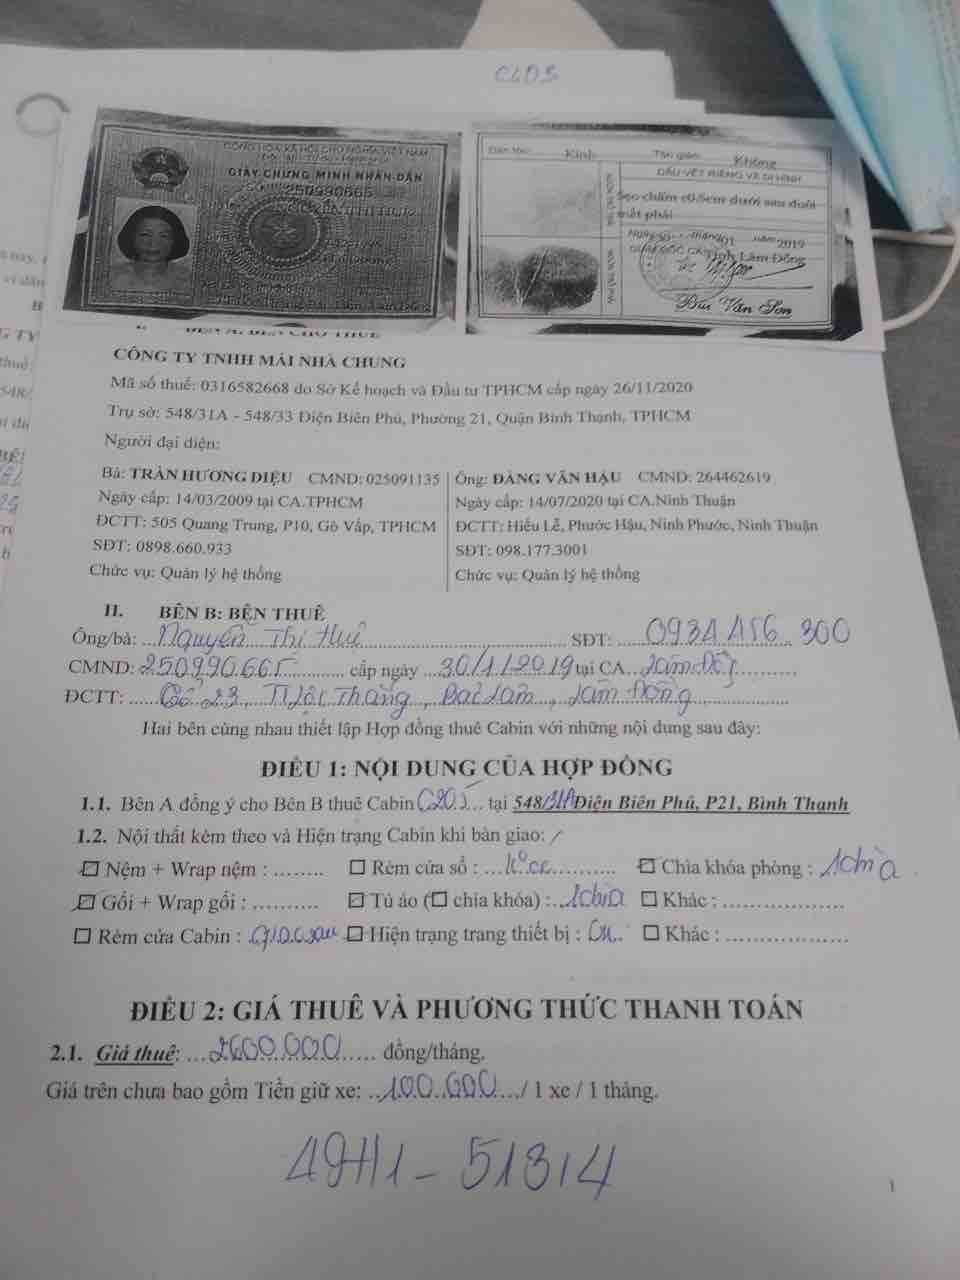 CỘNG HÒA XÃ HỘI CHỦ NGHĨA VIỆT NAM
GIẤY CHỨNG MINH NHÂN DÂN
SỐ 250990665
Dân tộc: Kinh Tôn giáo: Không
DẤU VẾT RIÊNG VÀ DỊ HÌNH
Sẹo chấm c0.5cm dưới sau đuôi
mắt phải
Ngày 30 tháng 01 năm 2019
GIÁM ĐỐC CA Tỉnh Lâm Đồng
Bùi Văn Sơn
I. BÊN A: BÊN CHO THUÊ
CÔNG TY TNHH MÁI NHÀ CHUNG
Mã số thuế: 0316582668 do Sở Kế hoạch và Đầu tư TPHCM cấp ngày 26/11/2020
Trụ sở: 548/31A - 548/33 Điện Biên Phủ, Phường 21, Quận Bình Thạnh, TPHCM
Người đại diện:
Bà: TRẦN HƯƠNG DIỆU CMND: 025091135
Ngày cấp: 14/03/2009 tại CA.TPHCM
ĐCTT: 505 Quang Trung, P10, Gò Vấp, TPHCM
SĐT: 0898.660.933
Chức vụ: Quản lý hệ thống
Ông: ĐÀNG VĂN HẬU CMND: 264462619
Ngày cấp: 14/07/2020 tại CA.Ninh Thuận
ĐCTT: Hiếu Lễ, Phước Hậu, Ninh Phước, Ninh Thuận
SĐT: 098.177.3001
Chức vụ: Quản lý hệ thống
II. BÊN B: BÊN THUÊ
Ông/bà: Nguyễn Thị Huê SĐT: 0934 456 300
CMND: 250990665 cấp ngày 30/1/2019 tại CA Lâm Đồng
ĐCTT: Tổ 23, TT Lộc Thắng, Bảo Lâm, Lâm Đồng
Hai bên cùng nhau thiết lập Hợp đồng thuê Cabin với những nội dung sau đây:
ĐIỀU 1: NỘI DUNG CỦA HỢP ĐỒNG
1.1. Bên A đồng ý cho Bên B thuê Cabin C205 tại 548/31A Điện Biên Phủ, P21, Bình Thạnh
1.2. Nội thất kèm theo và Hiện trạng Cabin khi bàn giao:
Nệm + Wrap nệm : ........ Rèm cửa sổ : ........ Chìa khóa phòng : 1chìa
Gối + Wrap gối : .......... Tủ áo ( chìa khóa) : 1chìa Khác : ..................
Rèm cửa Cabin : Hiện trạng trang thiết bị : Khác : ..................
ĐIỀU 2: GIÁ THUÊ VÀ PHƯƠNG THỨC THANH TOÁN
2.1. Giá thuê: ...2600.000..... đồng/tháng.
Giá trên chưa bao gồm Tiền giữ xe: ..100.000.../ 1 xe / 1 tháng.
49H1 - 51314
1